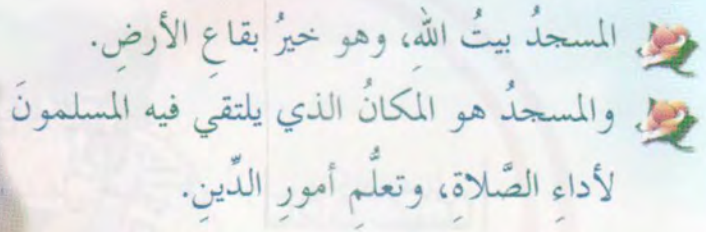 المسجدُ بيتُ اللهِ، وهو خيرُ بقاعِ الأرضِ.
والمسجدُ هو المكانُ الذي يلتقي فيه المسلمونَ
لأداءِ الصَّلاةِ، وتعلُّمِ أمورِ الدِّينِ.